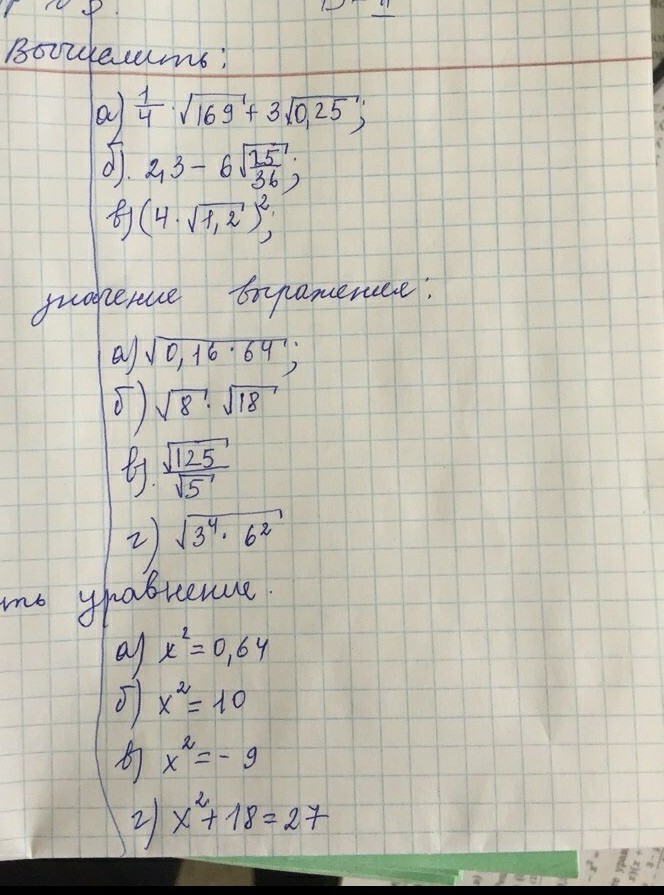 Вычислить:
а) 1/4 · √169 + 3√0,25;
б). 2,3 − 6√25/36;
в) (4 · √1,2)²;
значение выражения:
а) √0,16 · 64;
б) √8 · √18
в). √125/√5
г) √3⁴ · 6²
ть уравнение.
а) x² = 0,64
б) x² = 10
в) x² = − 9
г) x² + 18 = 27